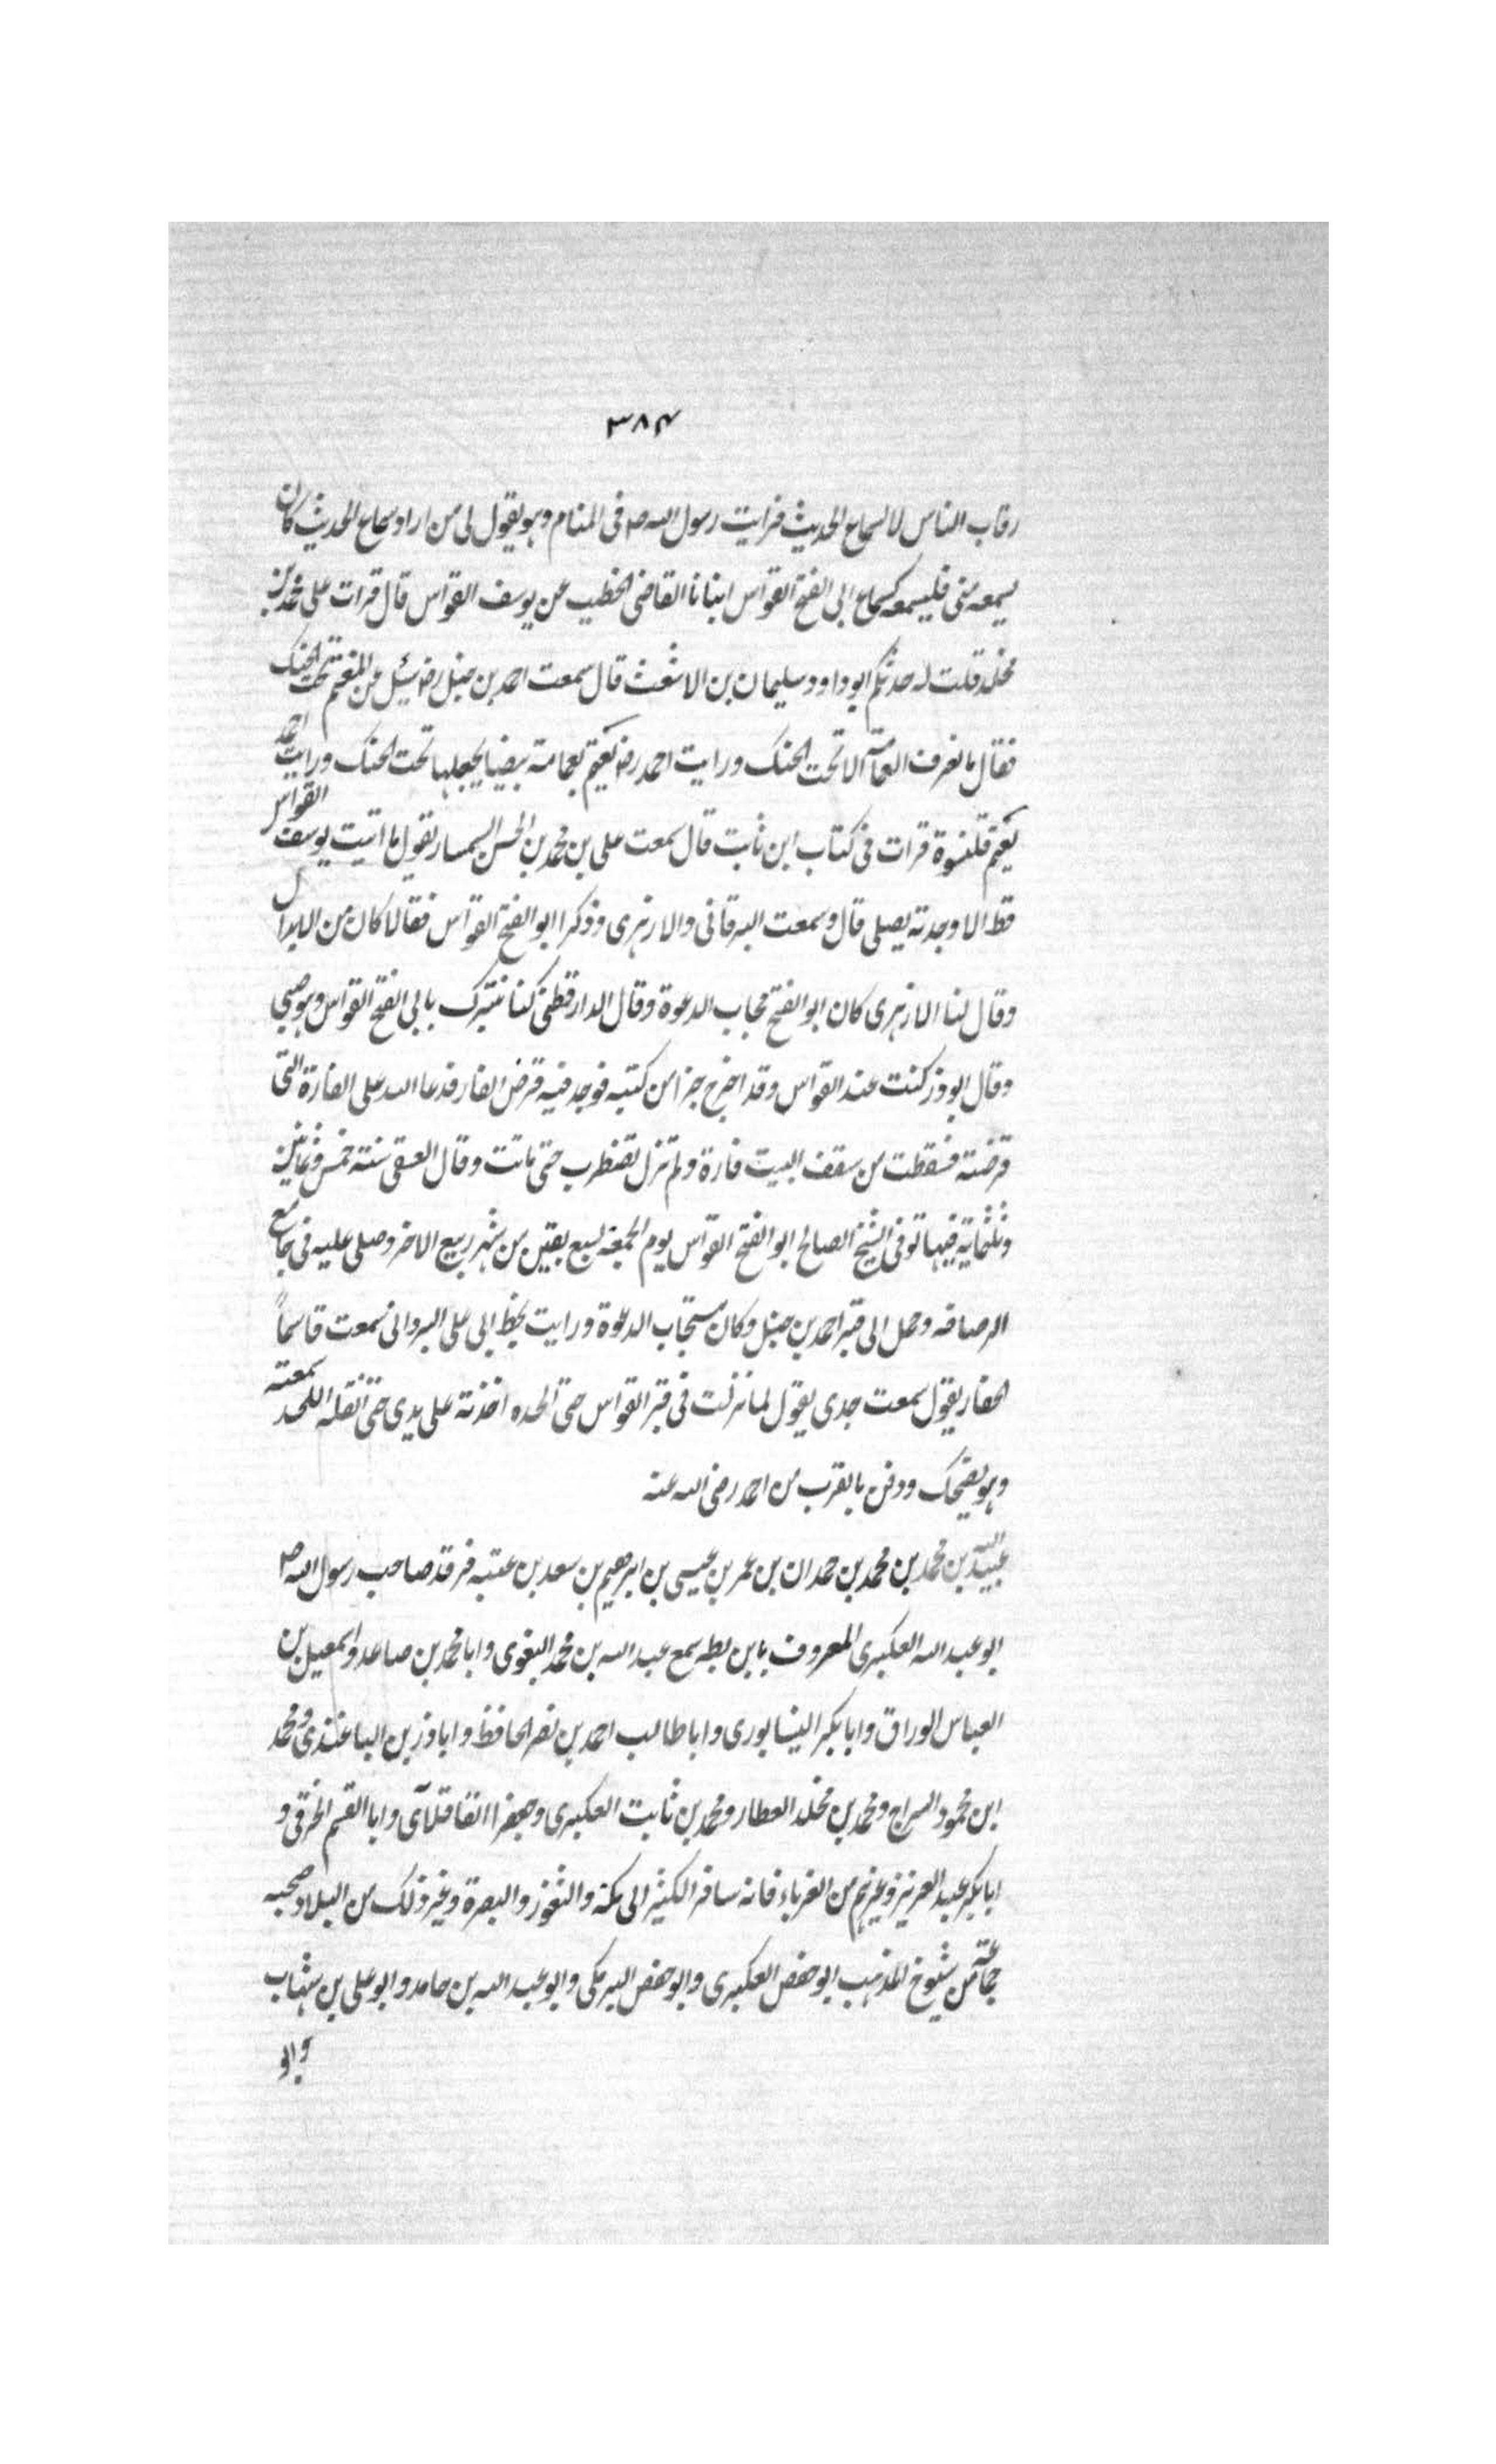 ٣٨٤
رقاب الناس لاسماع الحديث فرايت رسول الله ص فى المنام وهو يقول لى من اراد سماع الحديث كان
يسمعه منى فليسمعه كسماع ابى الفتح القواس انبانا القاضى الخطيب عن يوسف القواس قال قرات على محمد بن
مخلد قلت له حدثكم ابو داود سليمان بن الاشعث قال سمعت احمد بن حنبل رض سئل عن المتعمم تحت الحنك
فقال ما نعرف العامة الا تحت الحنك ورايت احمد رض يعتم بعمامة بيضا يجعلها تحت الحنك ورايت احمد
يعتم قلنسوة قرات فى كتاب ابن ثابت قال سمعت على بن محمد بن الحسن السمسار يقول ما اتيت يوسف القواس
قط الا وجدته يصلى قال وسمعت البرقانى والازهرى وذكرا ابو الفتح القواس فقالا كان من الابدال
وقال لنا الازهرى كان ابو الفتح مجاب الدعوة وقال الدارقطنى كنا نتبرك بابى الفتح القواس وهو صبى
وقال ابو ذر كنت عند القواس وقد اخرج جزا من كتبه فوجد فيه قرض الفار فدعا الله على الفارة التى
قرضته فسقطت من سقف البيت فارة ولم تزل تضطرب حتى ماتت وقال العتيقى سنة خمس وثمانين
وثلثماية فيها توفى الشيخ الصالح ابو الفتح القواس يوم الجمعة لسبع بقين من شهر ربيع الاخر وصلى عليه فى جامع
الرصافه وحمل الى قبر احمد بن حنبل وكان مستجاب الدعوة ورايت بخط ابى على البردانى سمعت قاسماً
الحفار يقول سمعت جدى يقول لما نزلت فى قبر القواس حتى الحده اخذته على يدى حتى انقله اللحد سمعته
وهو يضحك ودفن بالقرب من احمد رضى الله عنه
عبيد الله بن محمد بن محمد بن حمدان بن عمر بن عيسى بن ابرهيم بن سعد بن عتبه فرقد صاحب رسول الله ص
ابو عبد الله العكبرى المعروف بابن بطه سمع عبد الله بن محمد البغوى وابا محمد بن صاعد واسمعيل بن
العباس الوراق وابا بكر النيسابورى وابا طالب احمد بن نصر الحافظ وابا ذر بن الباغندى ومحمد
ابن محمود السراج ومحمد بن مخلد العطار ومحمد بن ثابت العكبرى وجعفرا القافلآى وابا القسم الخرقى و
ابا بكر عبد العزيز وغيرهم من الغرباء فانه سافر الكثير الى مكة والثغور والبصرة وغير ذلك من البلاد وصحبه
جماعة من شيوخ المذهب ابو حفص العكبرى وابو حفص البرمكى وابو عبد الله بن حامد وابو على بن شهاب
وابو